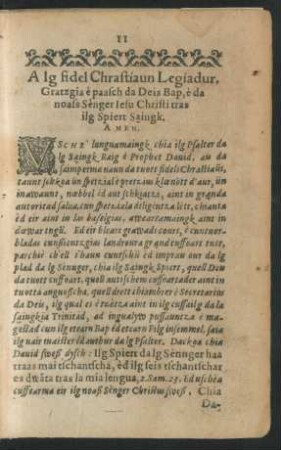 II
A lg fidel Chrastiaun Legiadur.
Gratzgia è paasch da Deis Bap, è da
noass Sènger Iesu Christi tras
ilg Spiert Saingk.
AMEN.
VSCHE' lungnamaingk chia ilg Psalter da
lg Saingk Raig è Prophet Dauid, au da
saimper mæ naun da tuots fidels Chrastiauns,
taunt sco
ün spetzial è pretzius klanöt d'aur, ün
inawaunt, nobbel èd aut schkjatzi, aint in granda
autoritad salua, cun spetziala diligentza lett, chianta
èd eir aint in las baselgias, awertamaingk aint in
dawartngk. Ed eir blears grawad cours, è cunturbladas
cunscientzgias landronra grand cuffoart tutt,
parchiè ch'ell s'haun cuntschü èd imprais our da lg
plad da lg Sènnger, chia ilg Saingk Spiert, quell Deu
da tuott cuffoart, quell autischem cuffoartader aint in
tuotta anguoscha, quel dret scribauder è Secretarius
da Deu, ilg qual es è trätza aint in ilg cussailg da la
saingkia Trinitad, ad ingualyw pussauntza è magestad
cun ilg etearn Bap èd etearn Filg insemmel, saia
ilg vair maister èd authur da lg Psalter. Daikya chia
Dauid swess dysch: Ilg Spiert da lg Sènnger haa
traas mai tschantscha, èd ilg seis tschantschar
es dwäta tras la mia lengua, 2. Sam. 23. Ed uschea
cuffearma eir ilg noass Sènger Christus swess, Chia
Da-